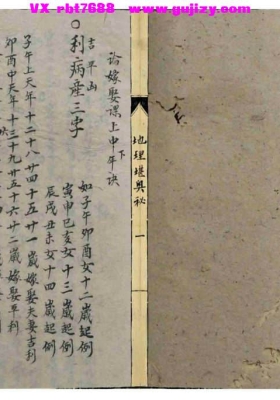 VX-rbt7688 www.gujizy.com
地理堪輿秘
一
論嫁娶課上中下年訣
吉平凶
○利病産三字
如子午卯酉女十二歲起例
寅申巳亥女十三歲起例
辰戌丑未女十四歲起例
子午上天年十二十八廿四十五廿一歲嫁娶夫妻吉利
卯酉中天年十三十九廿五十六廿二歲嫁娶平利